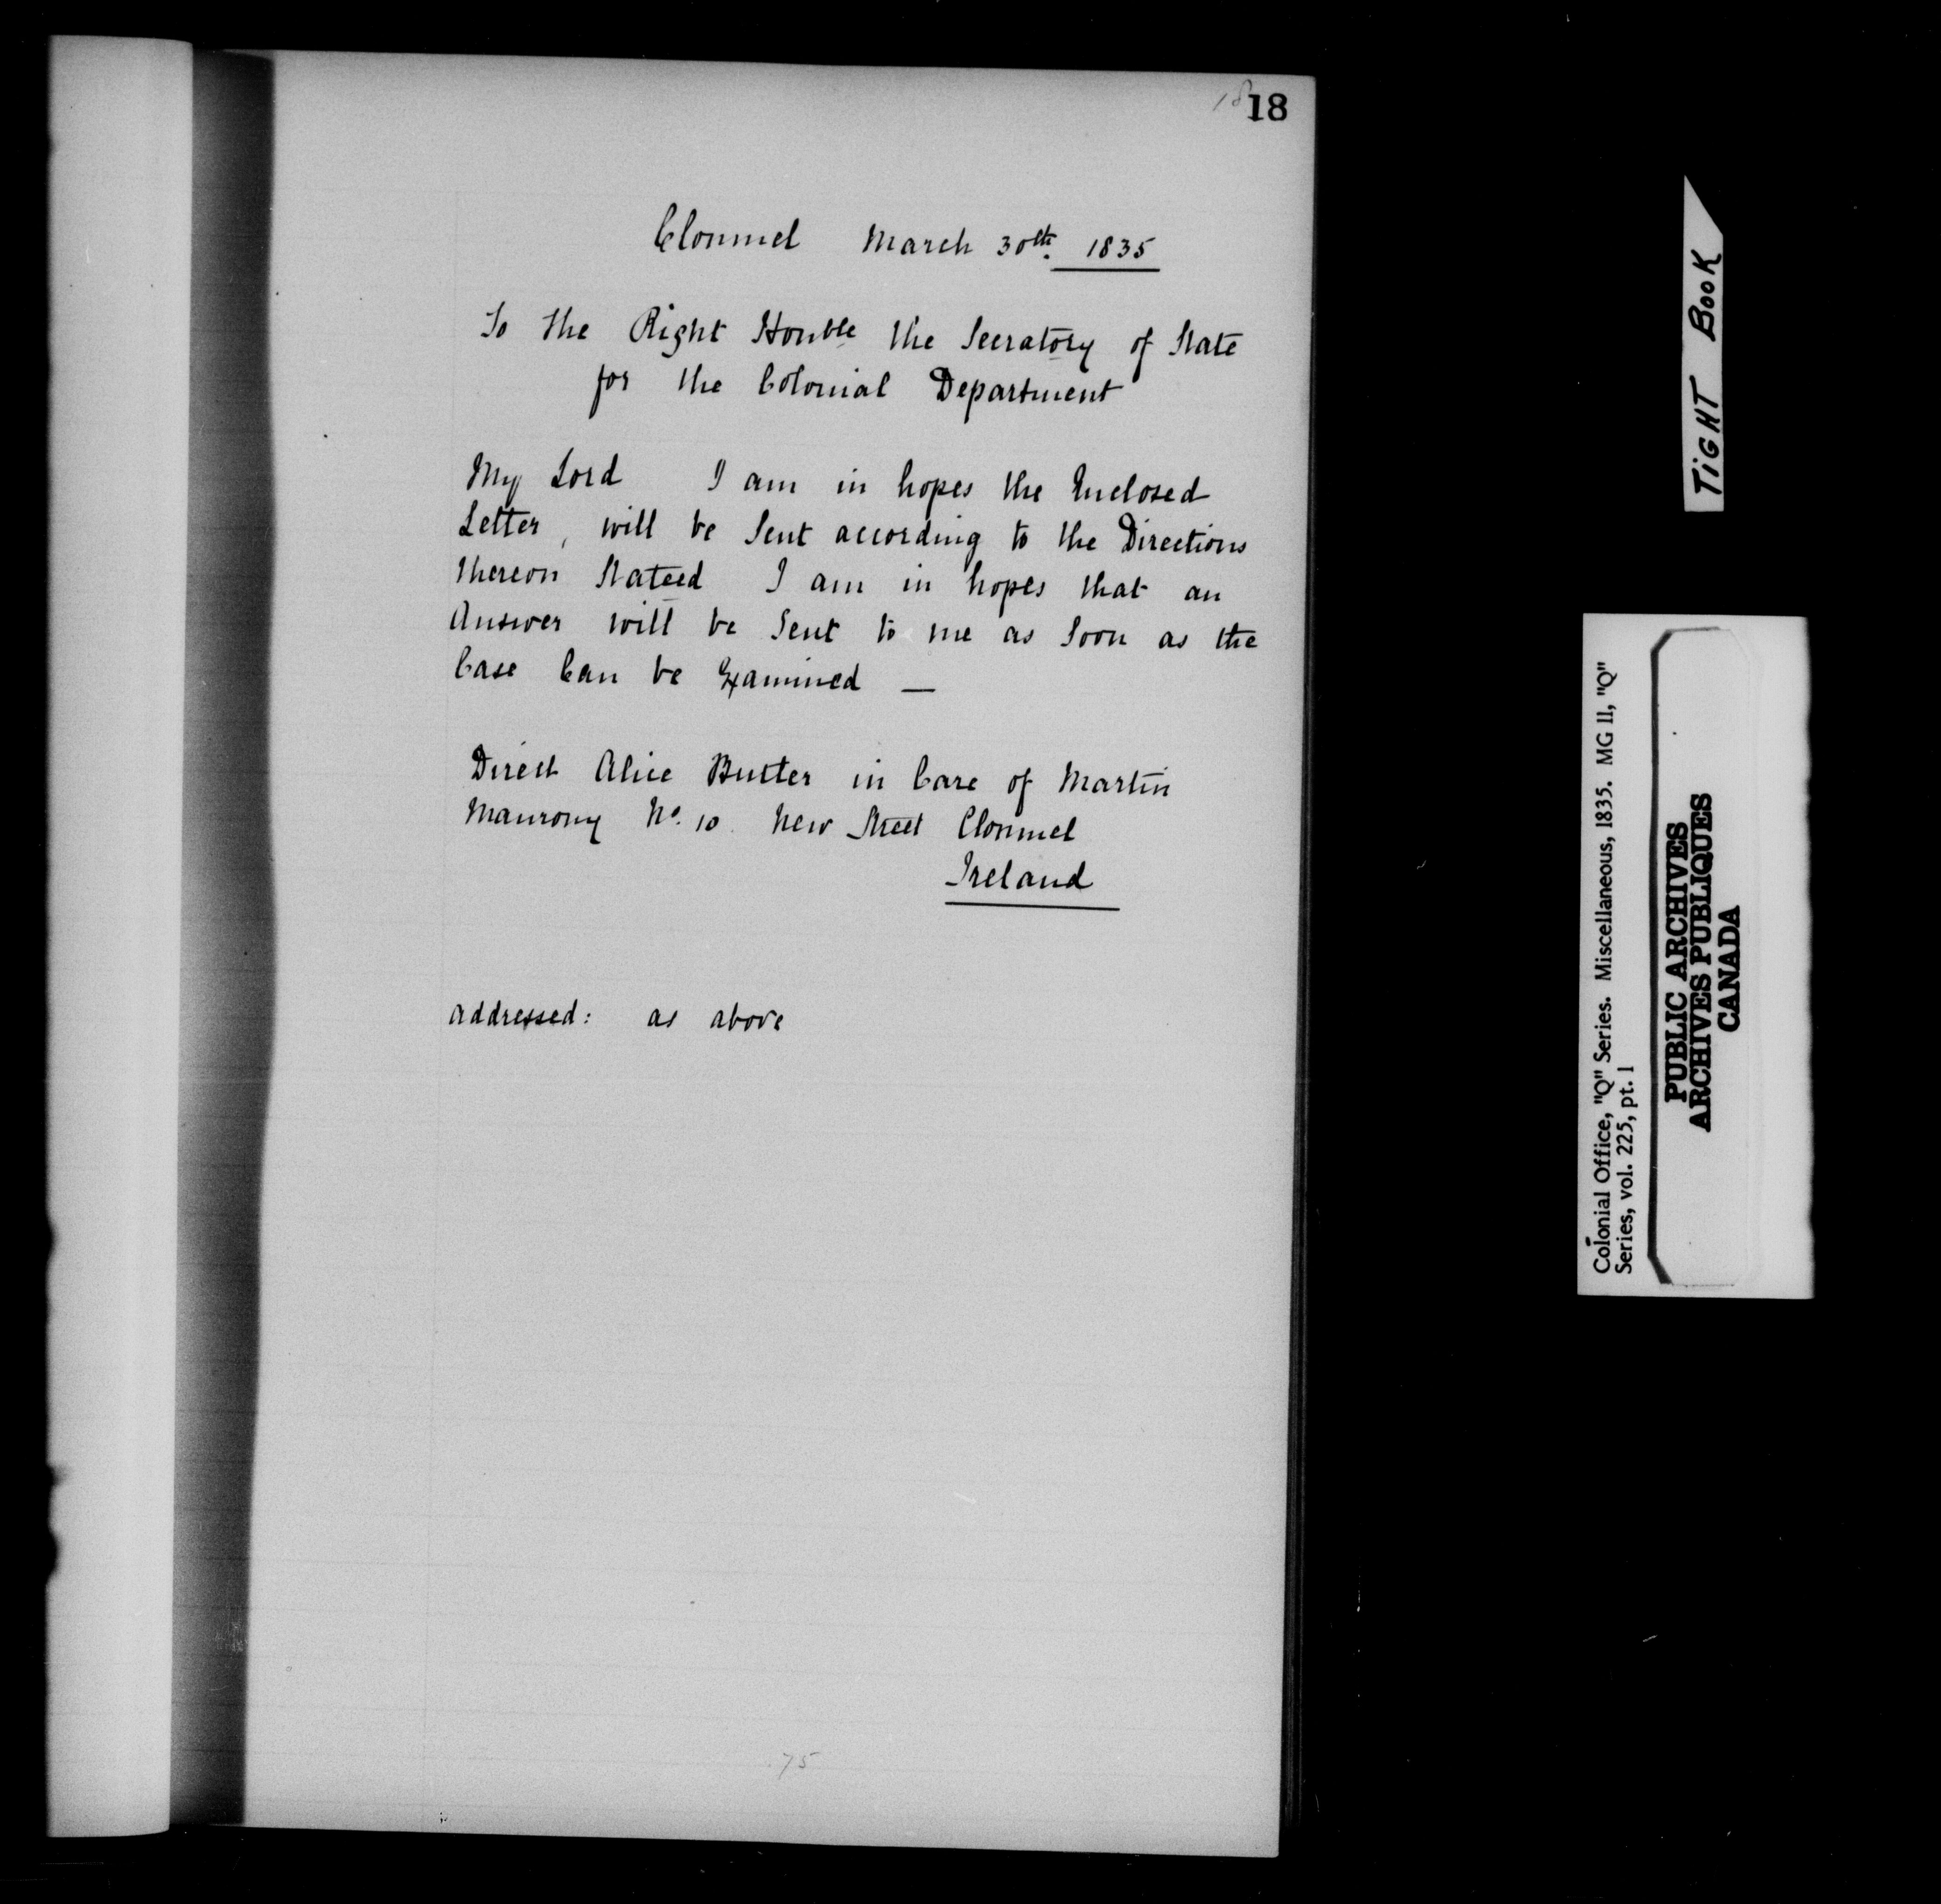 18
18
Clonmel March 30th. 1835
To the Right Honble the Secratory of State
for the Colonial Department
My Lord I am in hopes the Inclosed
Letter, will be Sent according to the Directions
thereon Stateed I am in hopes that an
Answer will be Sent to me as Soon as the
Case Can be Examined —
Direct Alice Butler in Care of Martin
No. 10. New Street Clonmel
Ireland
addressed: as above
75
TIGHT BOOK
Colonial Office, "Q" Series. Miscellaneous, 1835. MG 11, "Q"
Series, vol. 225, pt. 1
PUBLIC ARCHIVES
ARCHIVES PUBLIQUES
CANADA